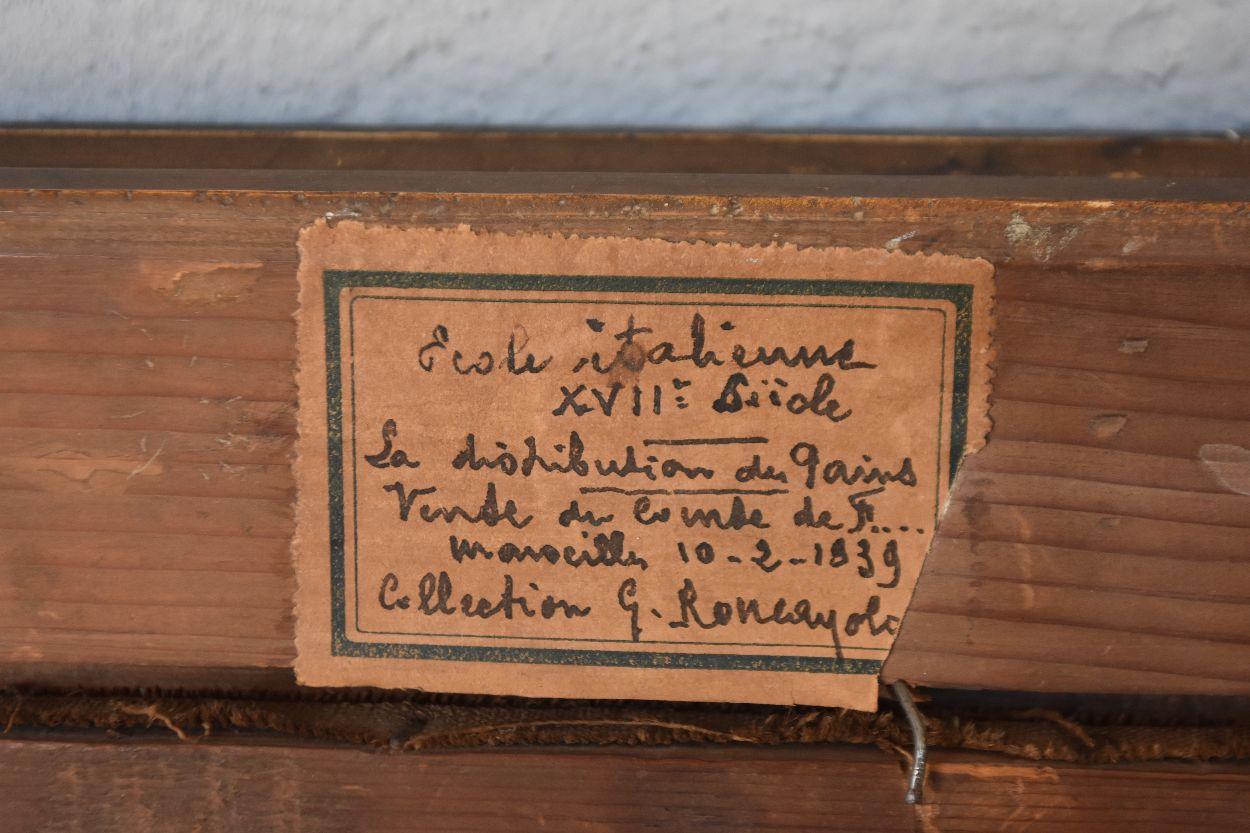 Ecole italienne
XVIIe Siècle
La distribution des Pains
Vente du Comte de F....
Marseille 10-2-1939
Collection G. Roncayolo